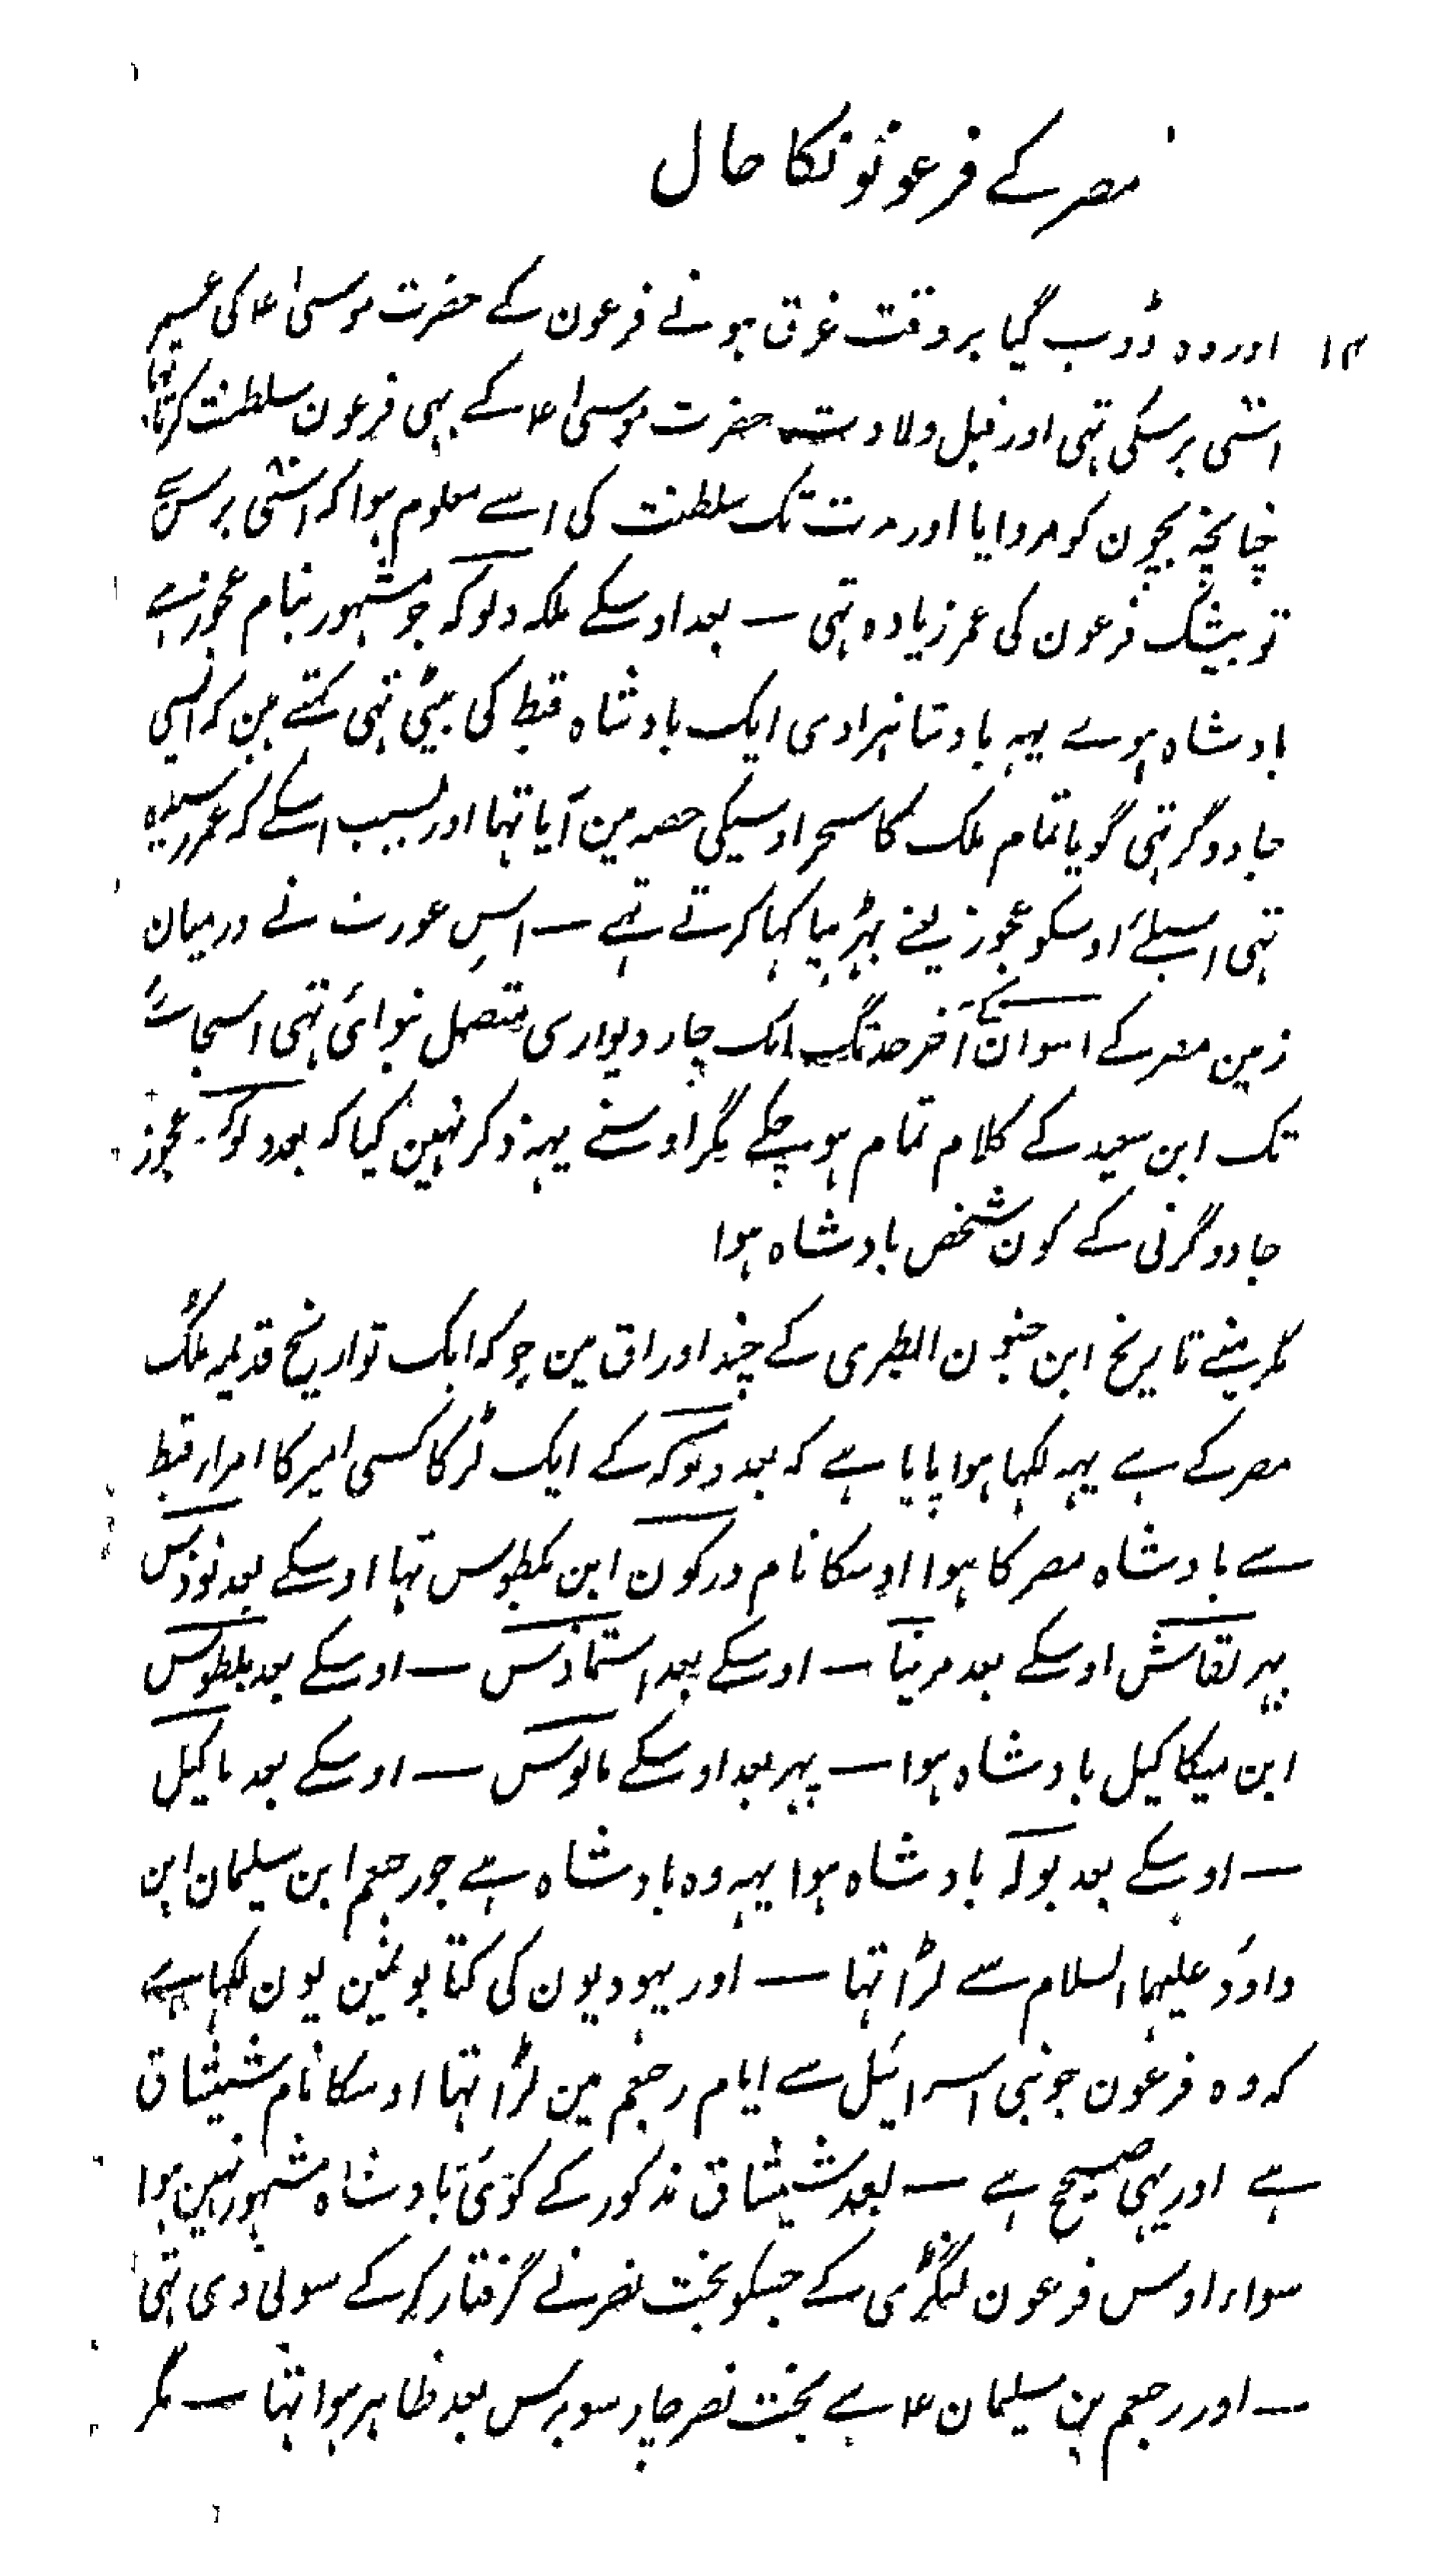 مصر کے فرعونونکا حال
۱۴ اور وہ ڈوب گیا بروقت غرق ہونے فرعون کے حضرت موسیٰ ۴ کی عمر
اسّی برسکی تہی اور قبل ولادت حضرت موسیٰ ۴ کے یہی فرعون سلطنت کرتا تہا
چنانچہ بچون کو مروایا اور مدت تک سلطنت کی اسے معلوم ہوا کہ اسّی برس سے
تو بیشک فرعون کی عمر زیادہ تہی — بعد اوسکے ملکہ دلوکہ جو مشہور بنام عجوز ہے
بادشاہ ہوے یہہ بادشاہزادی ایک بادشاہ قبط کی بیٹی تہی کہتے ہین کہ ایسی
جادوگر تہی گویا تمام ملک کا سحر اوسیکی حصہ مین آیا تہا اور بسبب اسکے کہ عمر رسیدہ
تہی اسلئے اوسکو عجوز یعنے بڑہیا کہا کرتے تہے — اس عورت نے درمیان
زمین مصر کے اسوان کے آخر حد تک ایک چار دیواری متصل بنوائی تہی اسجا سے
تک ابن سعید کے کلام تمام ہو چکے مگر اوسنے یہہ ذکر نہین کیا کہ بعد دلوکہ عجوز
جادوگرنی کے کون شخص بادشاہ ہوا
مگر مینے تاریخ ابن حنون الطبری کے چند اوراق مین جو کہ ایک تواریخ قدیمہ ملک
مصر کے ہے یہہ لکہا ہوا پایا ہے کہ بعد دلوکہ کے ایک لڑکا کسی امیر کا امراء قبط
سے بادشاہ مصر کا ہوا اوسکا نام درکون ابن بکطوس تہا اوسکے بعد نودس
پہر لقاش اوسکے بعد مرنیا — اوسکے بعد استماذس — اوسکے بعد بلطوس
ابن میکاکیل بادشاہ ہوا — پہر بعد اوسکے مالوس — اوسکے بعد ماکیل
— اوسکے بعد بولہ بادشاہ ہوا یہہ وہ بادشاہ ہے جو رحبعم ابن سلیمان ابن
داود علیہما السلام سے لڑا تہا — اور یہودیون کی کتابونمین یون لکہا ہے
کہ وہ فرعون جو بنی اسرائیل سے ایام رحبعم مین لڑا تہا اوسکا نام شیشاق
ہے اور یہی صحیح ہے — بعد شیشاق مذکور کے کوئی بادشاہ مشہور نہین ہوا
سواء اوس فرعون لنگڑی کے جسکو بخت نصر نے گرفتار کرکے سولی دی تہی
— اور رحبعم بن سلیمان ۴ سے بخت نصر چار سو برس بعد ظاہر ہوا تہا — مگر